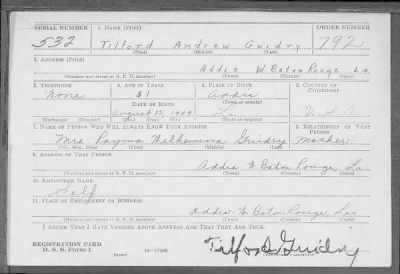 SERIAL NUMBER 1. NAME (Print) ORDER NUMBER
532 Telford Andrew Guidry 792
(First) (Middle) (Last)
2. ADDRESS (Print)
Addis W. Baton Rouge La.
(Number and street or R. F. D. number) (Town) (County) (State)
3. TELEPHONE 4. AGE IN YEARS 5. PLACE OF BIRTH 6. COUNTRY OF CITIZENSHIP
None 31 Addis
DATE OF BIRTH (Town or county)
August 15, 1909 La. U. S. A.
(Exchange) (Number) (Mo.) (Day) (Yr.) (State or country)
7. NAME OF PERSON WHO WILL ALWAYS KNOW YOUR ADDRESS 8. RELATIONSHIP OF THAT PERSON
Mrs. Wilhemina Guidry Mother
(Mr., Mrs., Miss) (First) (Middle) (Last)
9. ADDRESS OF THAT PERSON
Addis W. Baton Rouge, La.
(Number and street or R. F. D. number) (Town) (County) (State)
10. EMPLOYER'S NAME
Self
11. PLACE OF EMPLOYMENT OR BUSINESS
Addis W. Baton Rouge, La.
(Number and street or R. F. D. number) (Town) (County) (State)
I AFFIRM THAT I HAVE VERIFIED ABOVE ANSWERS AND THAT THEY ARE TRUE.
REGISTRATION CARD
D. S. S. Form 1 (over)
Guidry